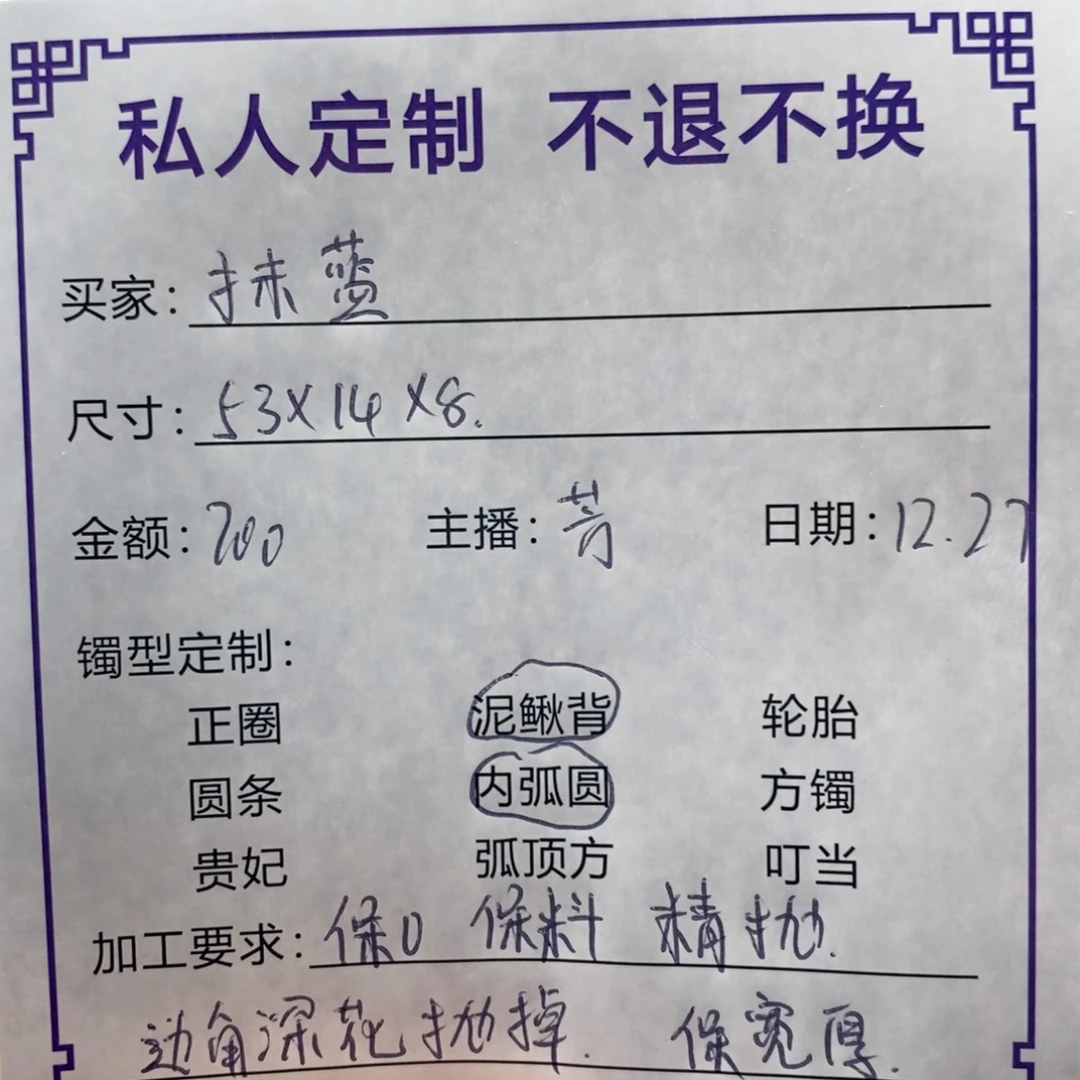 私人定制 不退不换
买家：抹蓝
尺寸：53X14X8.
金额：700 主播：芳 日期：12.27
镯型定制：
正圈 泥鳅背 轮胎
圆条 内弧圆 方镯
贵妃 弧顶方 叮当
加工要求：保口 保料 精抛.
边角深花抛掉. 保宽厚.